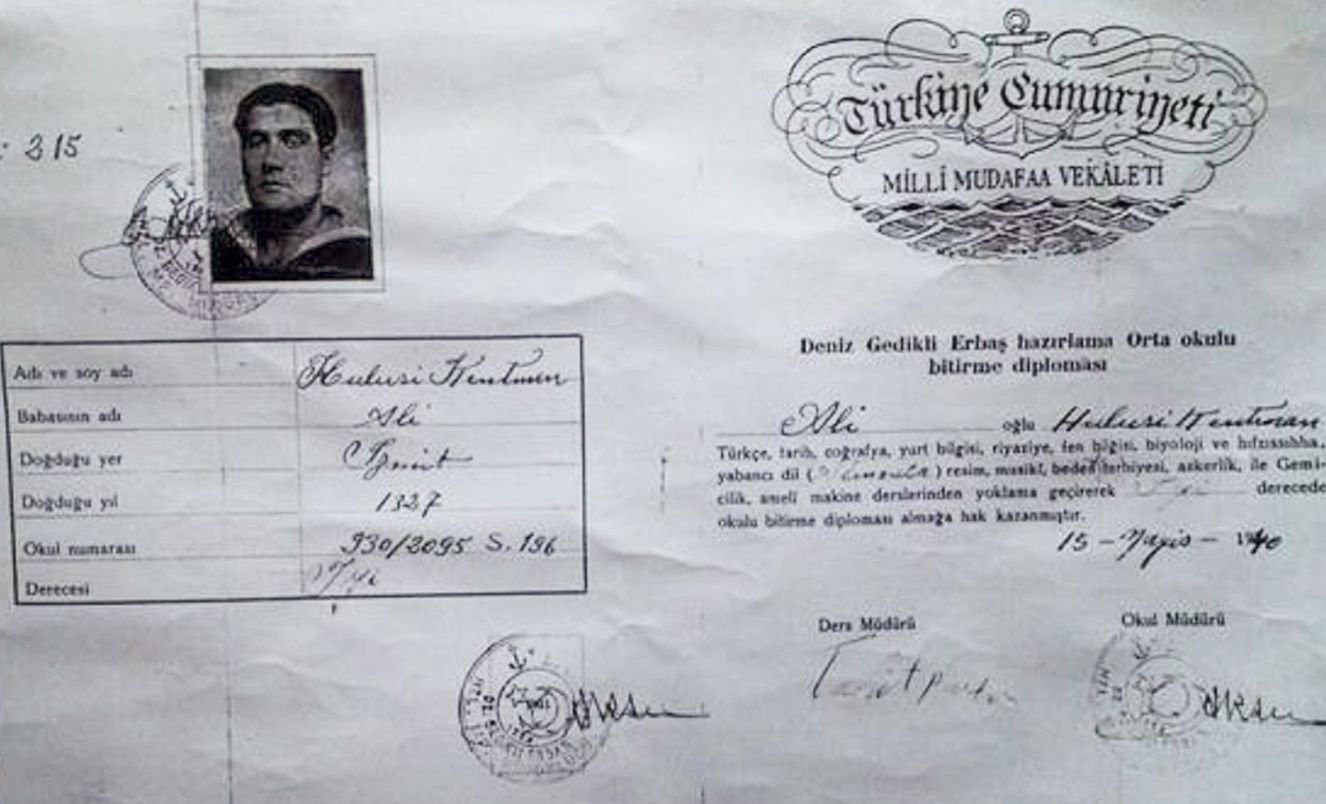 : 315
Türkiye Cumhuriyeti
MİLLÎ MUDAFAA VEKÂLETİ
Adı ve soy adı Hulusi Kentmen
Babasının adı Ali
Doğduğu yer İzmit
Doğduğu yıl 1327
Okul numarası 930/2095 S. 196
Derecesi İyi
Deniz Gedikli Erbaş hazırlama Orta okulu
bitirme diploması
Ali oğlu Hulusi Kentmen
Türkçe, tarih, coğrafya, yurt bilgisi, riyaziye, fen bilgisi, biyoloji ve hıfzıssıhha,
yabancı dil ( ) resim, musikî, beden terbiyesi, askerlik, ile Gemi-
cilik, amelî makine derslerinden yoklama geçirerek İyi derecede
okulu bitirme diploması almağa hak kazanmıştır.
15 - Mayis - 1940
Ders Müdürü
Okul Müdürü